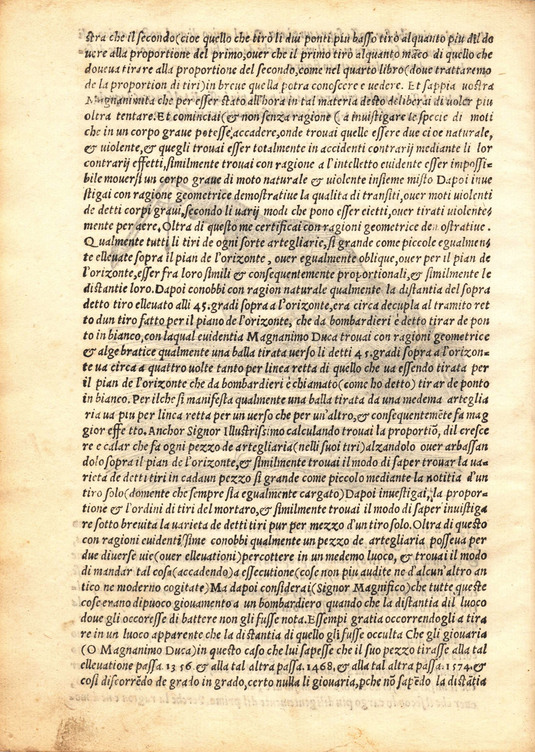 stra che il secondo(cioe quello che tirò li dui ponti piu basso tirò alquanto piu dil do
uere alla proportione del primo,ouer che il primo tirò alquanto māco di quello che
doueua tirare alla proportione del secondo,come nel quarto libro(doue trattaremo
de la proportion di tiri)in breue quella potra conoscere e uedere. Et sappia uostra
Magnanimita che per esser stato all'hora in tal materia desto deliberai di uoler piu
oltra tentare.Et cominciai(& non senza ragione (a inuistigare le specie di moti
che in un corpo graue potesse,accadere,onde trouai quelle essere due cioe naturale,
& uiolente,& quegli trouai esser totalmente in accidenti contrarij mediante li lor
contrarij effetti,similmente trouai con ragione a l'intelletto euidente esser impossi-
bile mouersi un corpo graue di moto naturale & uiolente insieme misto Dapoi inue
stigai con ragione geometrice demostratiue la qualita di transiti,ouer moti uiolenti
de detti corpi graui,secondo li uarij modi che pono esser eietti,ouer tirati uiolente-
mente per aere,Oltra di questo me certificai con ragioni geometrice demostratiue.
Qualmente tutti li tiri de ogni sorte artegliarie,si grande come piccole egualmen-
te elleuate sopra il pian de l'orizonte , ouer egualmente oblique,ouer per il pian de
l'orizonte,esser fra loro simili & consequentemente proportionali,& similmente le
distantie loro.Dapoi conobbi con ragion naturale qualmente la distantia del sopra
detto tiro elleuato alli 45.gradi sopra a l'orizonte,era circa decupla al tramito ret
to dun tiro fatto per il piano de l'orizonte, che da bombardieri è detto tirar de pon
to in bianco,con laqual euidentia Magnanimo Duca trouai con ragioni geometrice
& algebratice qualmente una balla tirata uerso li detti 45.gradi sopra a l'orizon-
te ua circa a quattro uolte tanto per linea retta di quello che ua essendo tirata per
il pian de l'orizonte che da bombardieri è chiamato(come ho detto)tirar de ponto
in bianco.Per ilche si manifesta qualmente una balla tirata da una medema arteglia
ria ua piu per linea retta per un uerso che per un'altro,& consequentemēte fa mag
gior effetto.Anchor Signor Illustrissimo calculando trouai la proportiō, dil cresce
re e calar che fa ogni pezzo de artegliaria(nelli suoi tiri)alzandolo ouer arbassan
dolo sopra il pian de l'orizonte,& similmente trouai il modo di saper trouar la ua-
rieta de detti tiri in cadaun pezzo si grande come piccolo mediante la notitia d'un
tiro solo(domente che sempre sia egualmente cargato)Dapoi inuestigai,la propor-
tione & l'ordini di tiri del mortaro,& similmente trouai il modo di saper inuistiga
re sotto breuita la uarieta de detti tiri pur per mezzo d'un tiro solo.Oltra di questo
con ragioni euidentissime conobbi qualmente un pezzo de artegliaria posseua per
due diuerse uie(ouer elleuationi)percottere in un medemo luoco, & trouai il modo
di mandar tal cosa(accadendo)a essecutione(cose non piu audite ne d'alcun'altro an
tico ne moderno cogitate)Ma dapoi considerai(Signor Magnifico)che tutte queste
cose erano dipuoco giouamento a un bombardiero quando che la distantia dil luoco
doue gli occoresse di battere non gli fusse nota.Essempi gratia occorrendogli a tira
re in un luoco apparente che la distantia di quello gli fusse occulta Che gli giouaria
(O Magnanimo Duca)in questo caso che lui sapesse che il suo pezzo tirasse alla tal
elleuatione passa 1356.& alla tal altra passa.1468,& alla tal altra passa.1574.&
cosi discorrēdo de grado in grado,certo nulla li giouaria,pche nō sapēdo la distātia